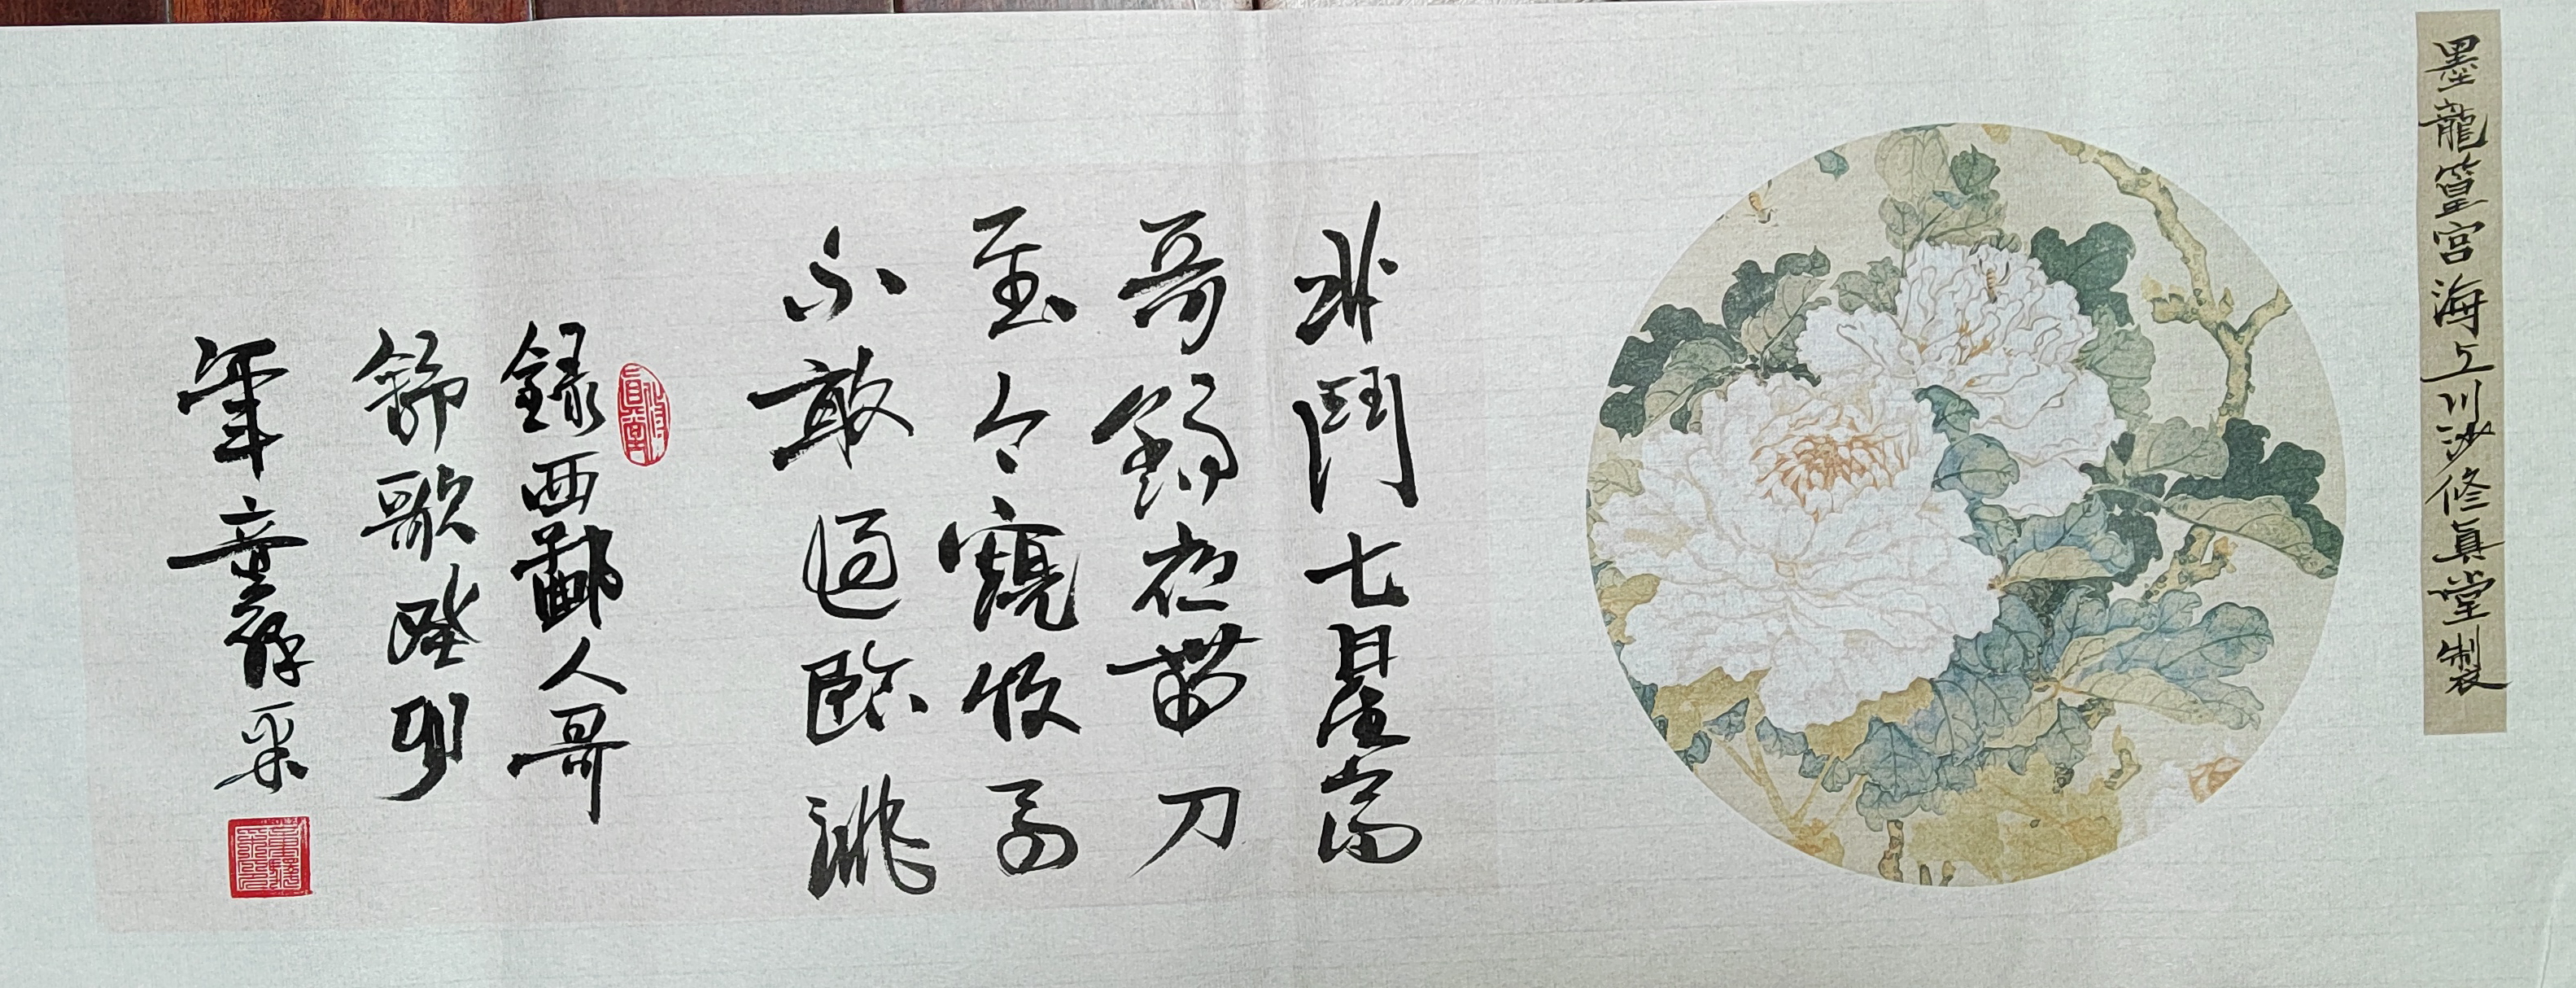 墨龍篁宮海上川沙修真堂製
北鬥七星高
哥舒夜帶刀
至今窺牧馬
不敢過臨洮
錄西鄙人哥
舒歌癸卯
年